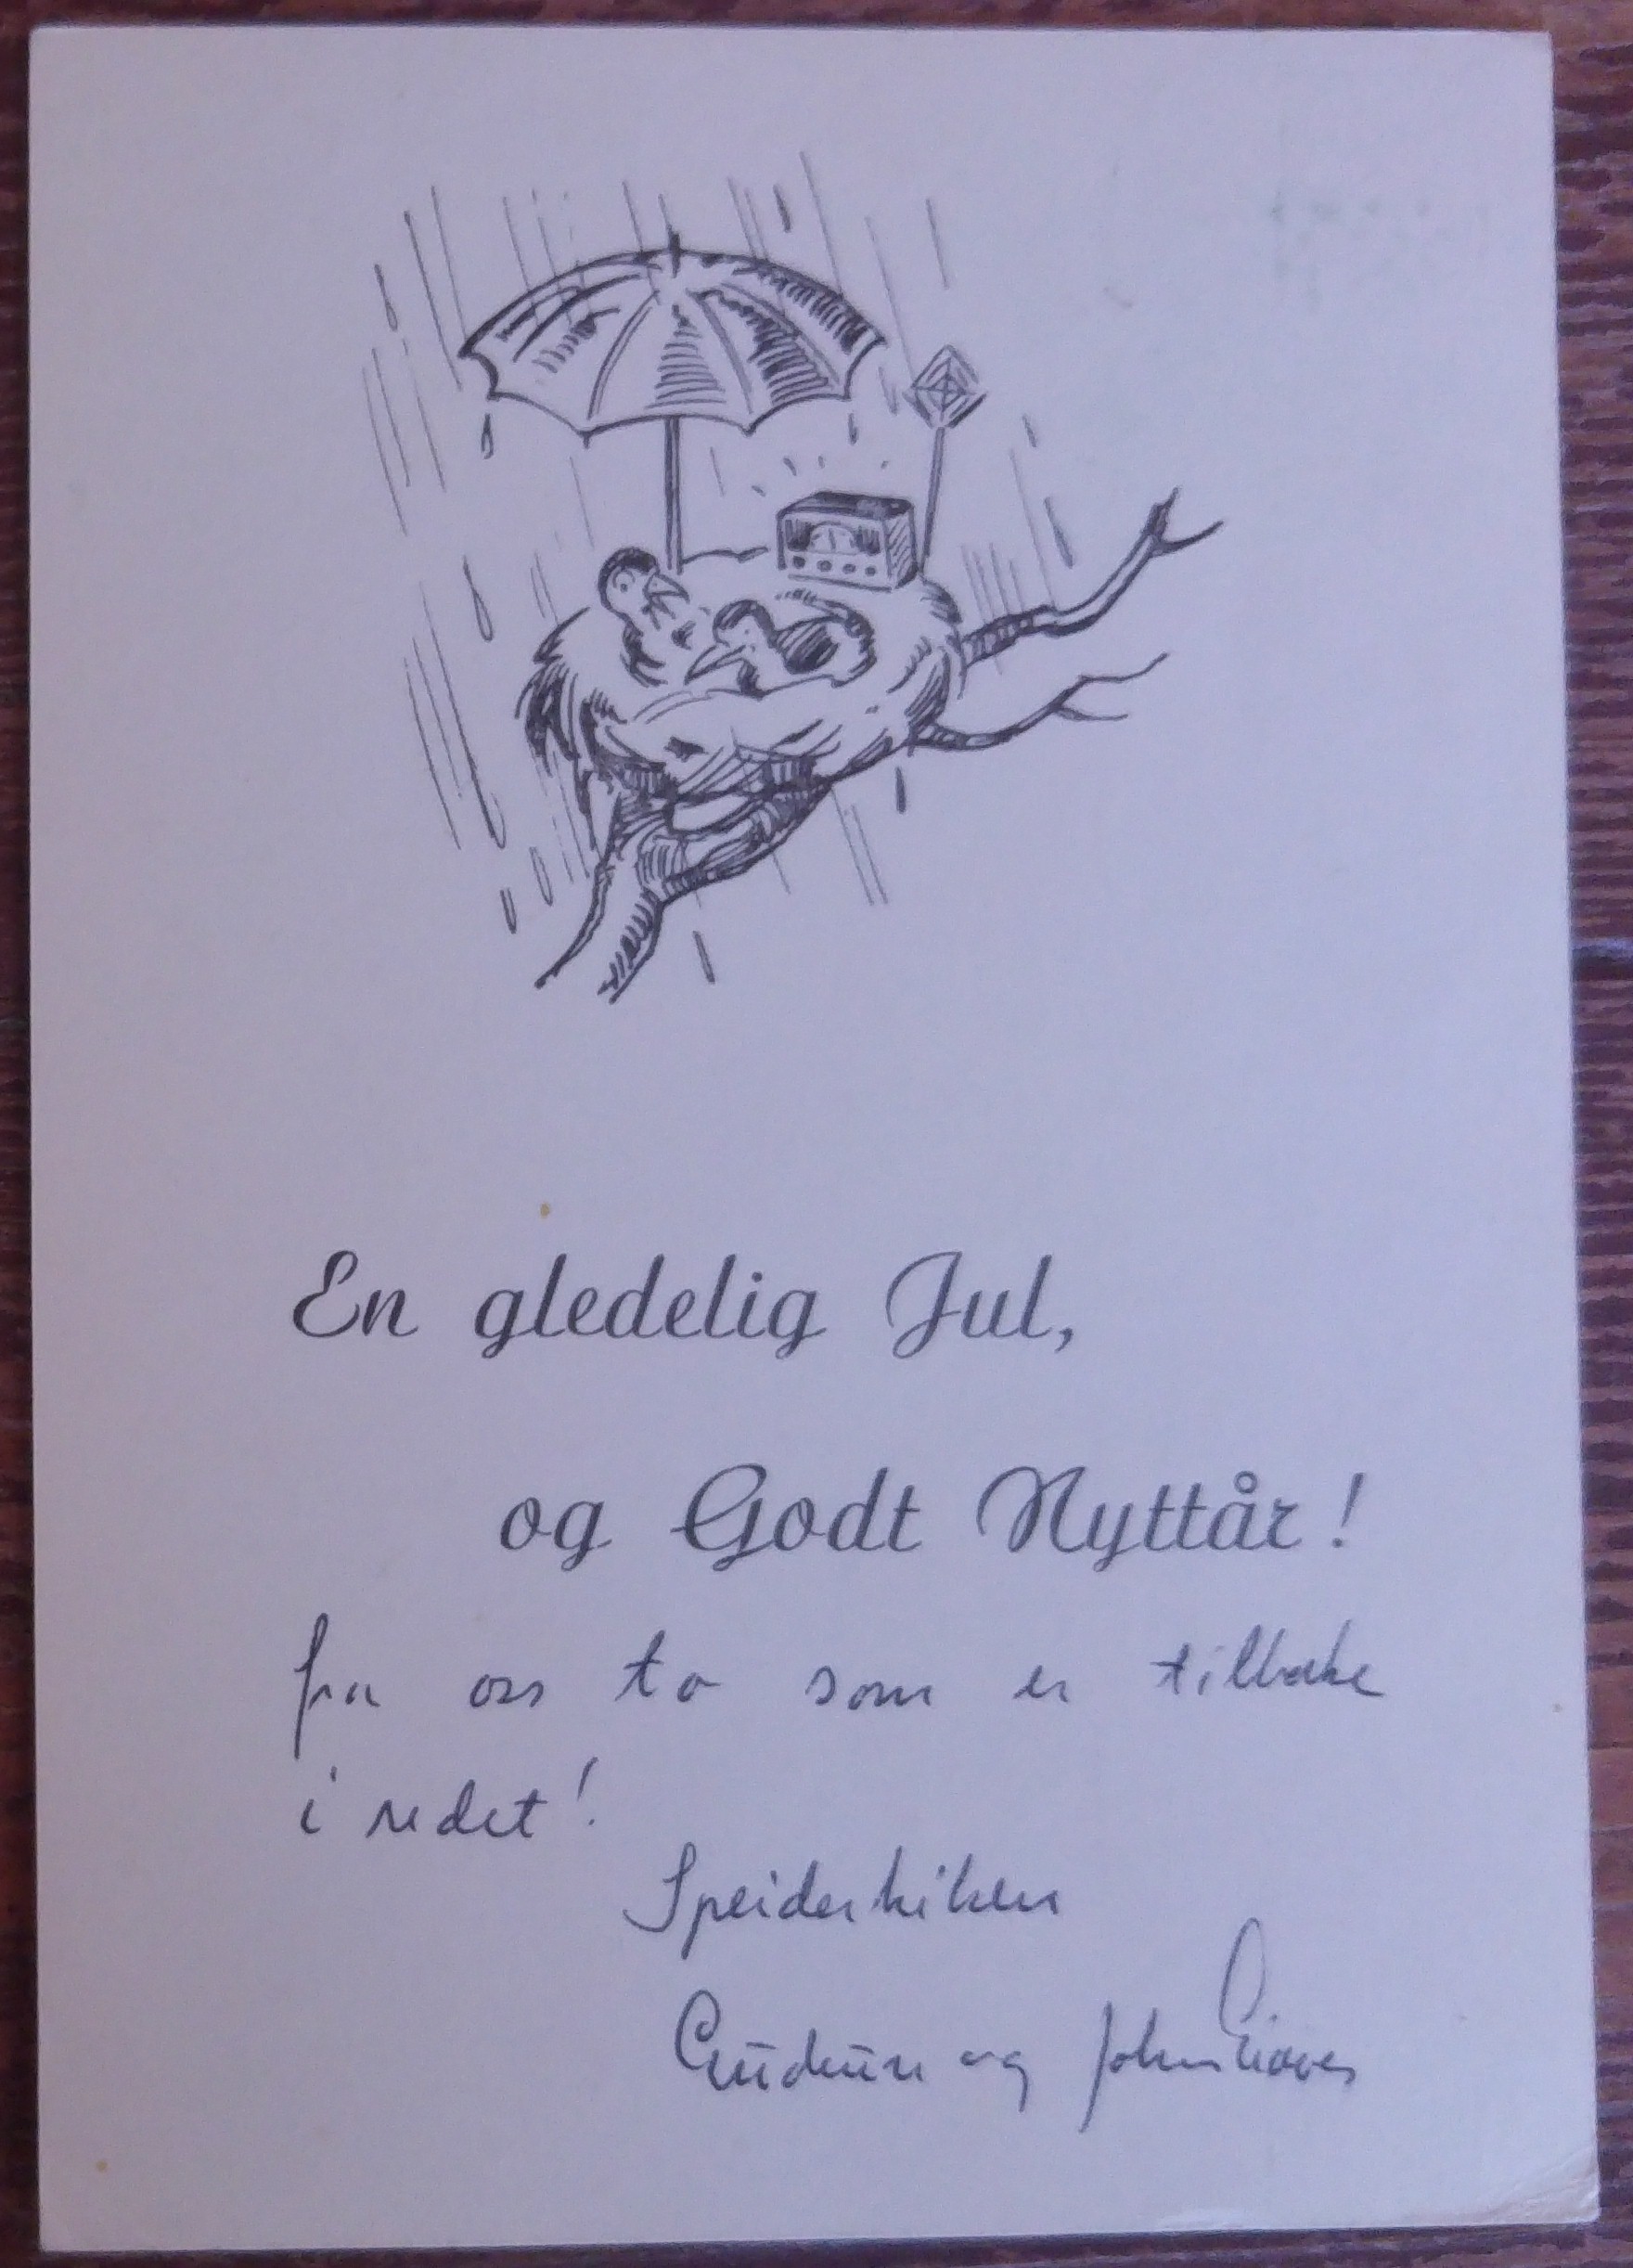 En gledelig Jul,
og Godt Nyttår!
fra oss to som er tilbake
i redet!
Speiderhilsen
Gudrun og John